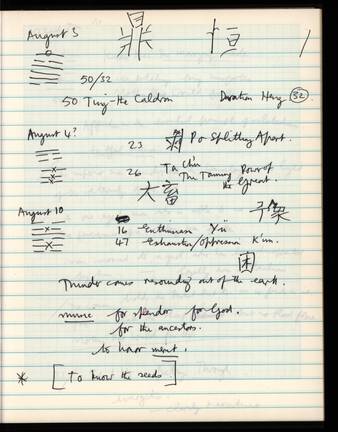 August 3 鼎 恒
50/32
50 Ting-the Caldron Duration Heng 32
August 4?
23 剥 Po Splitting Apart.
26 Ta Ch'u The Taming Power of
the Great.
大畜
August 10
16 Enthusiasm Yü
47 Exhaustion/Oppression K'un.
困
Thunder comes resounding out of the earth.
music for splendor for God.
for the ancestors.
to honor merit.
* [To know the seeds]